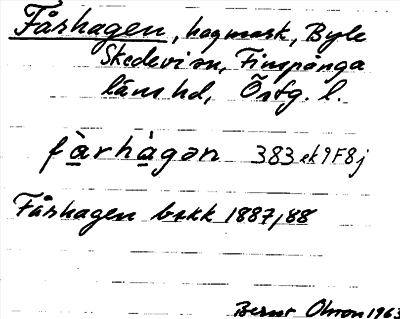 Fårhagen, hagmark, Byle
Skedevi sn, Finspånga
läns hd, Östg. l.
fårhågən 383 ek 9F8j
Fårhagen bskk 1887/88
Bernt Olsson 1963